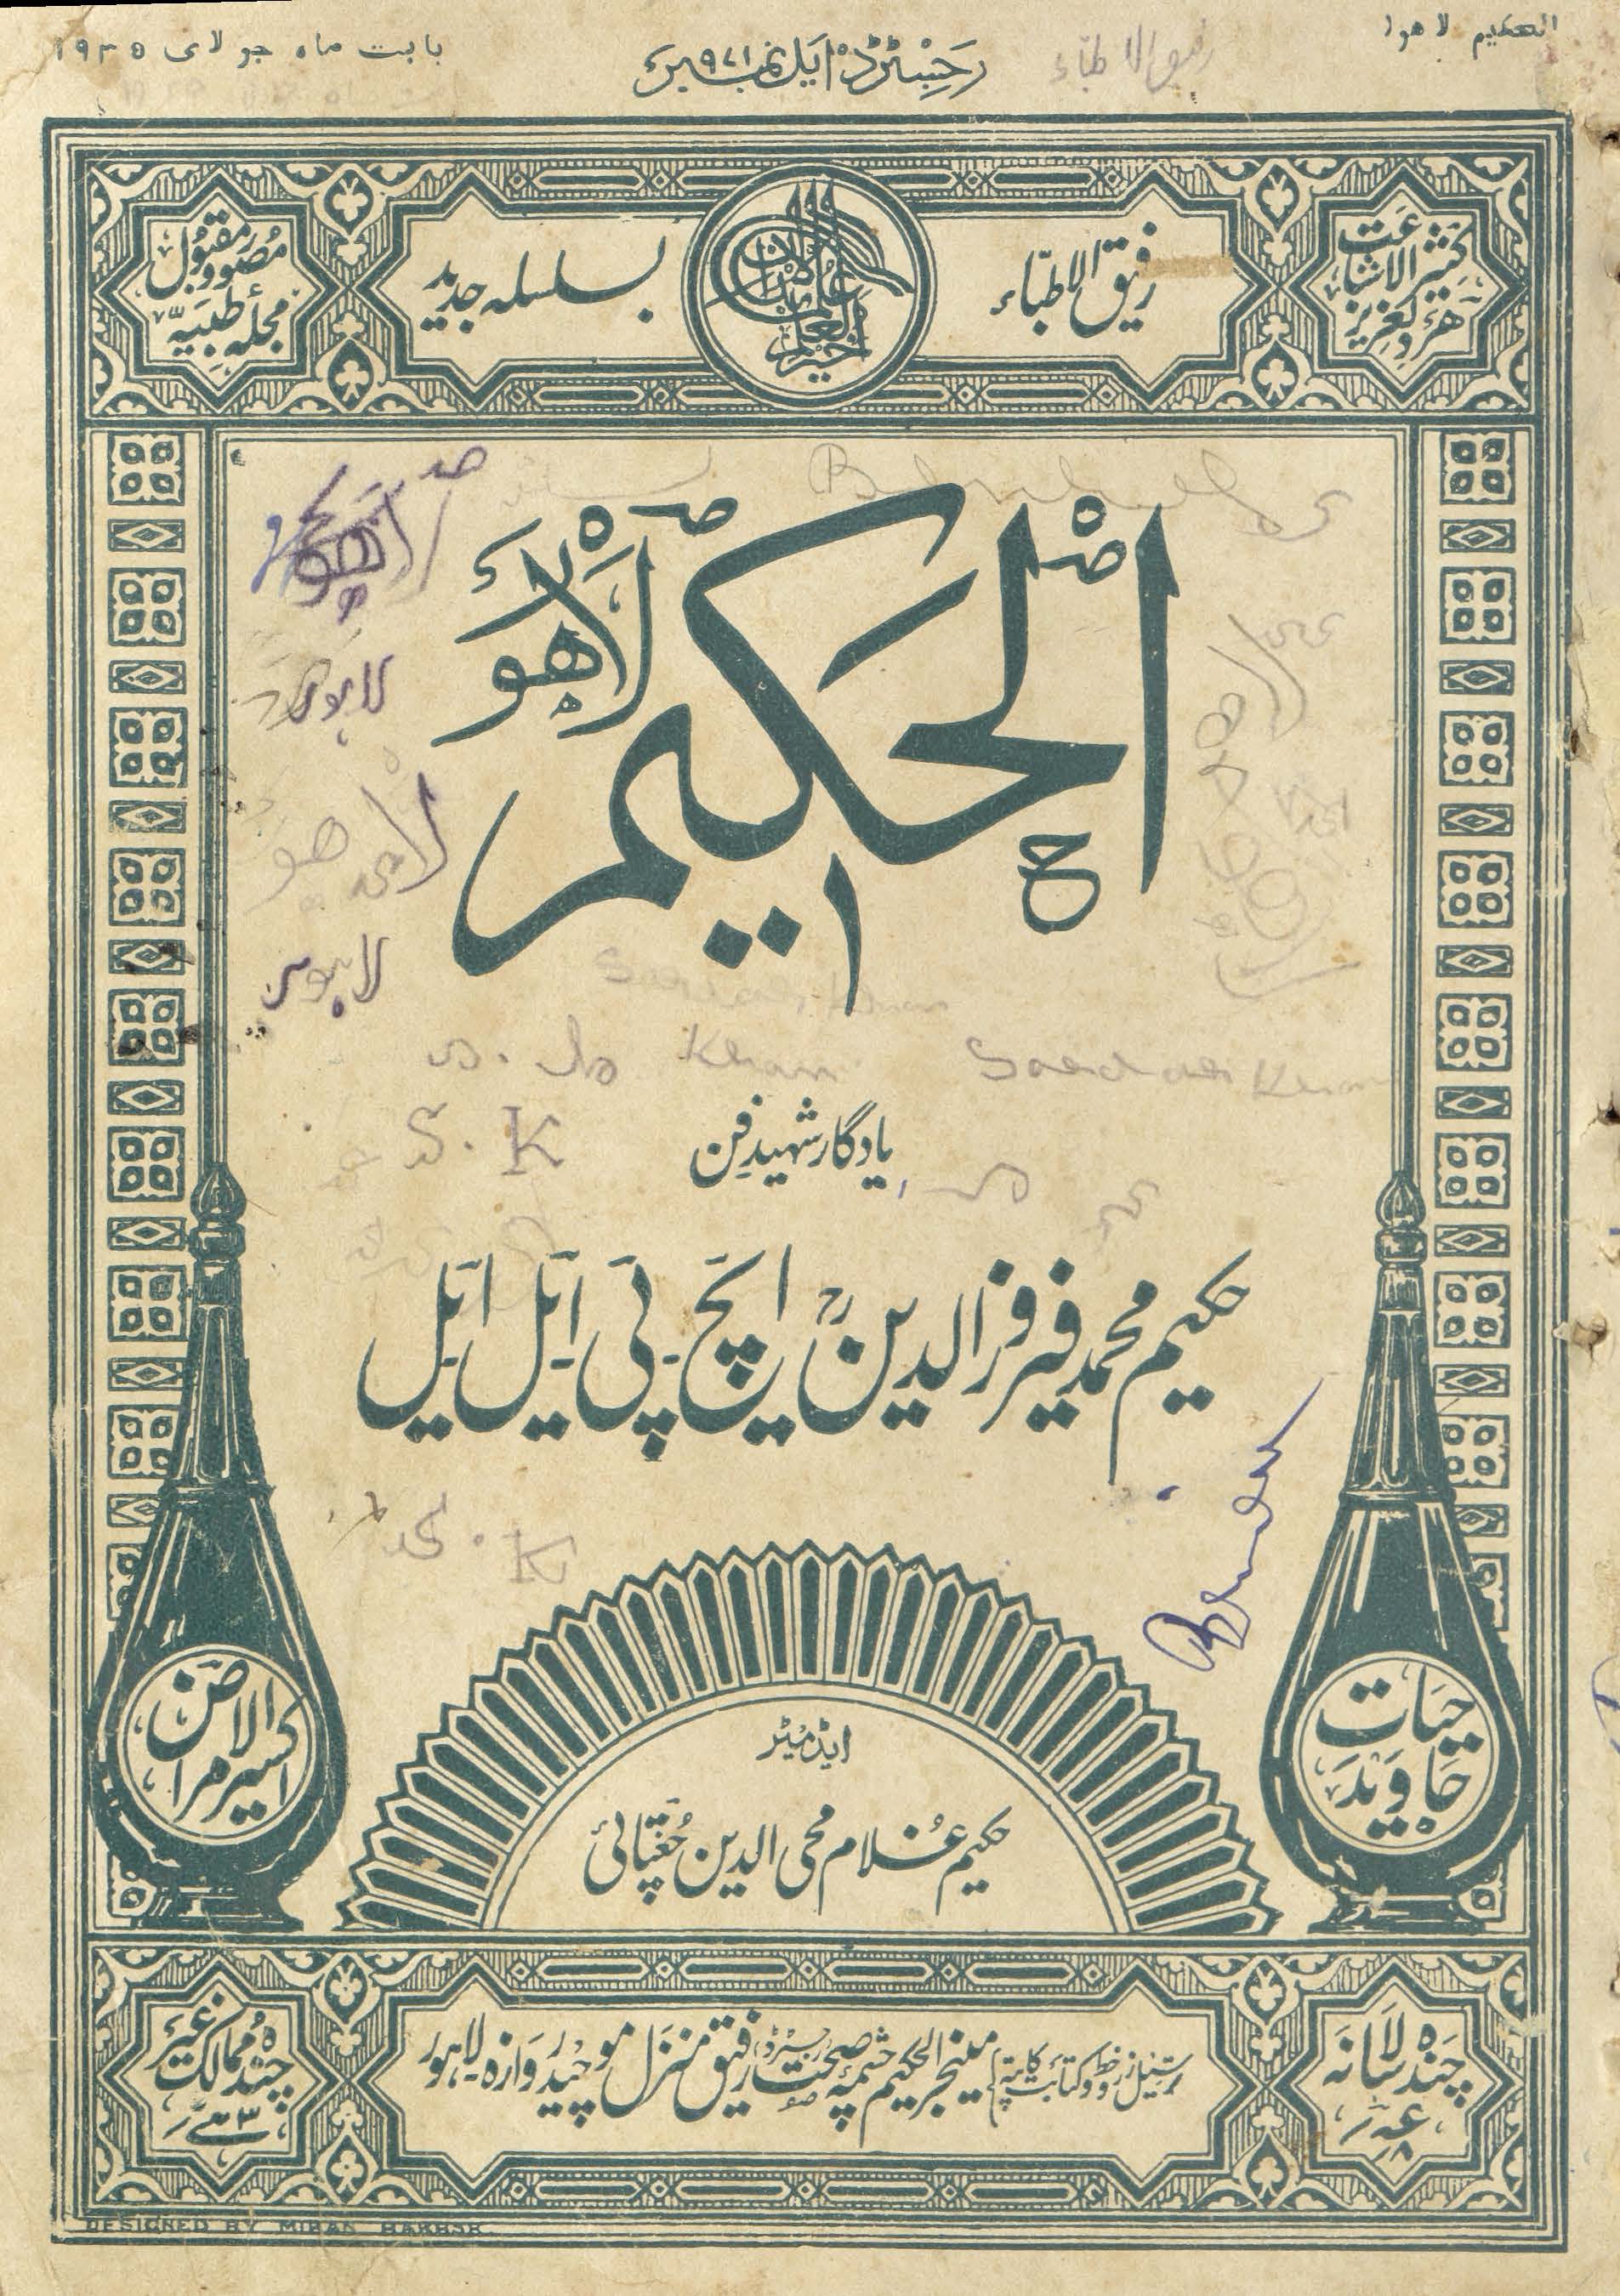 الحکیم لاہور
رجسٹرڈ ایل نمبر ۹۷۱
بابت ماہ جولائی ۱۹۳۵
رفیق الاطباء
کثیر الاشاعت
ہر دلعزیز
رفیق الاطبّاء
بسلسلہ جدید
مصور و مقبول
مجلہ طبیہ
الحکیم
لاہور
لاہور
لاہور
لاہور
Khan
S. K
یادگار شہیدِ فن
حکیم محمد فیروز الدینؒ ایچ۔ پی۔ ایل۔ ایل
S. K
حیات
جاوید
اکسیر الامراض
ایڈیٹر
حکیم غلام محی الدین چغتائی
چندہ سالانہ
ترسیل زر و خط و کتابت کا پتہ
مینیجر الحکیم چشمہ صحت رجسٹرڈ رفیق منزل موچیدروازہ۔ لاہور
چندہ ممالک غیر
DESIGNED BY MIRAN BAKHSH.